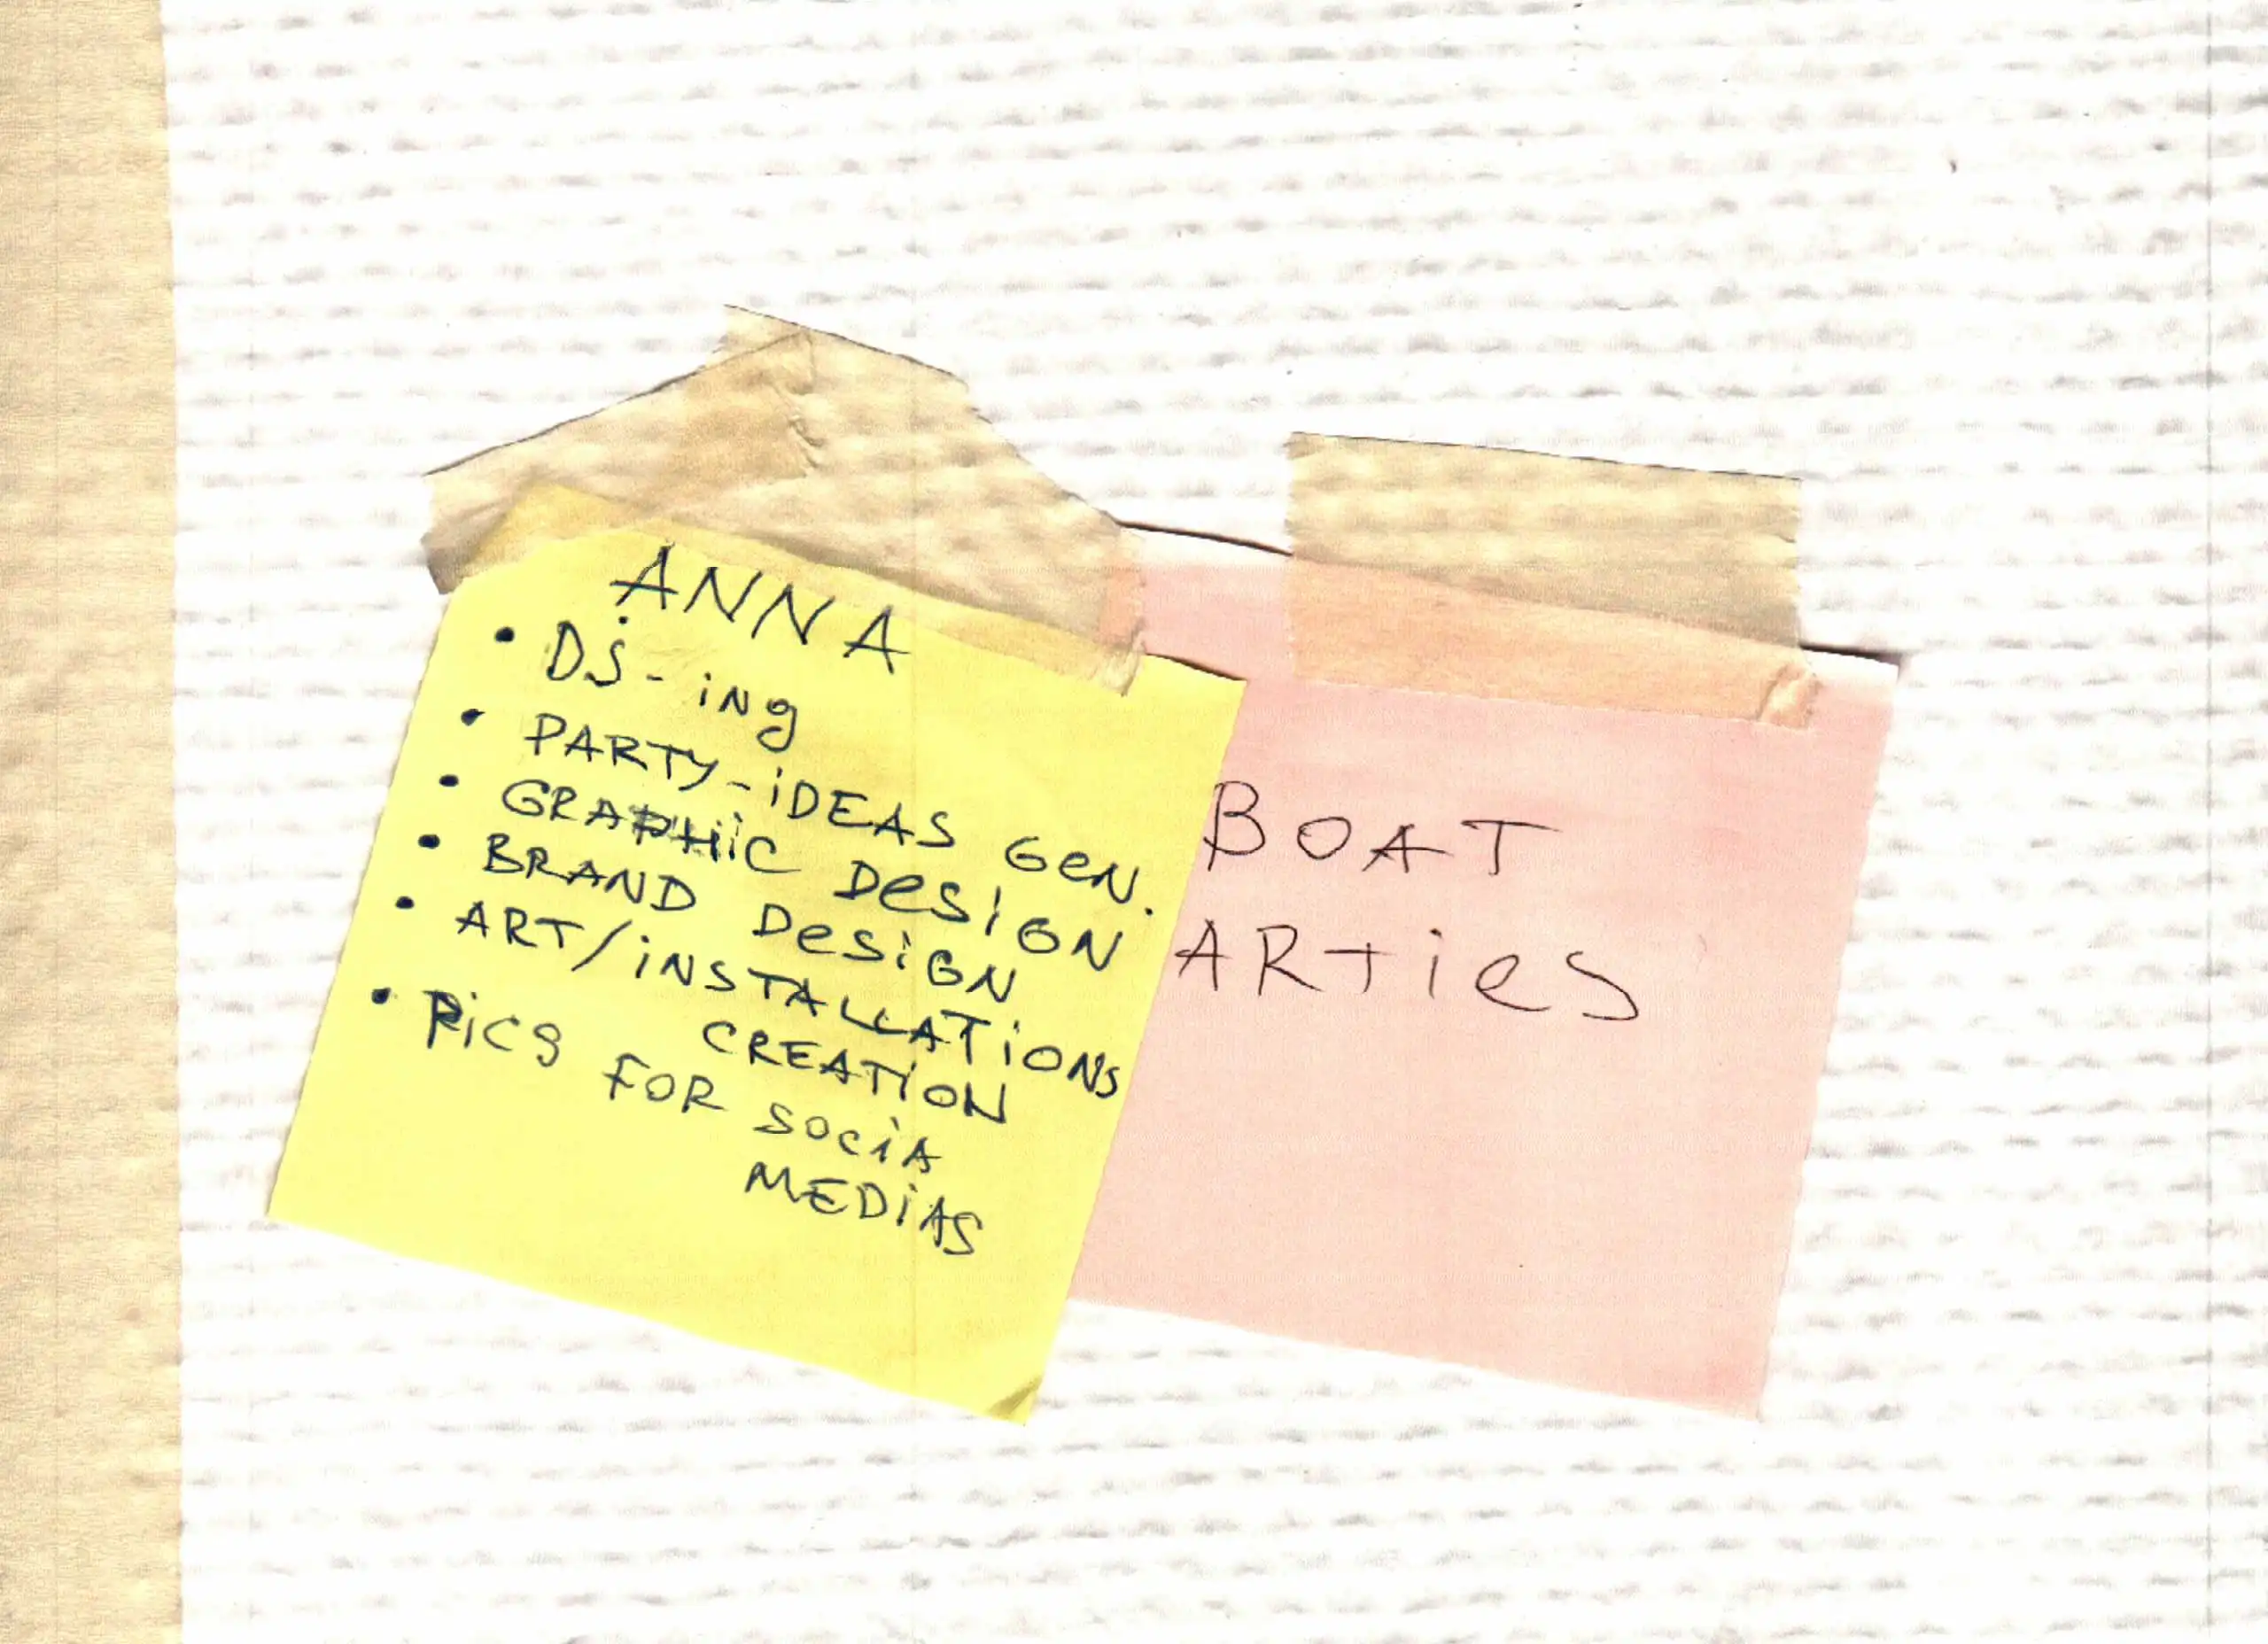 ANNA
• DJ-ing
• PARTY-iDEAS GeN.
• GRAPHiC DeSIGN
• BRAND DesiGN
• ART/iNSTALLATiONS
CREATION
• PiCS FOR SOCiA
MEDiAS
BOAT
ARTieS